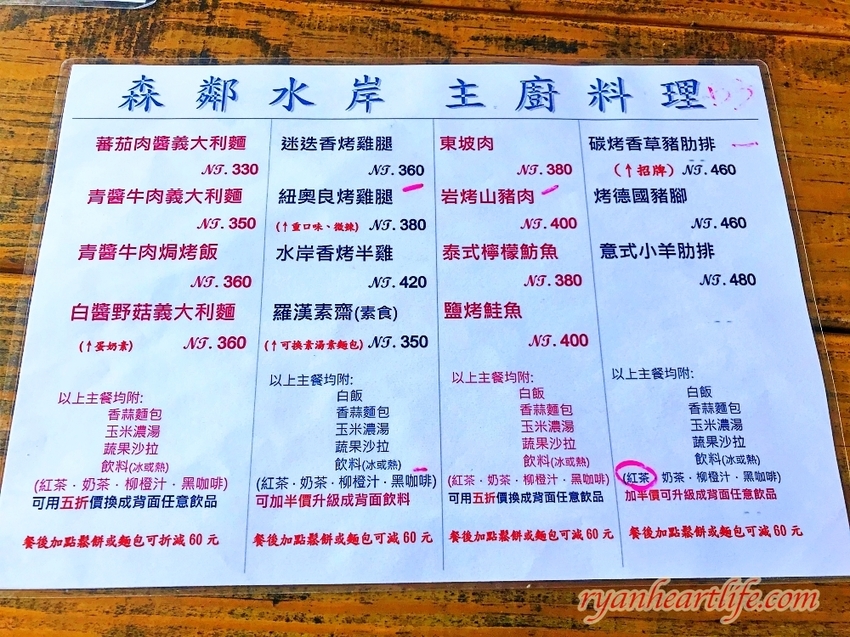 森鄰水岸 主廚料理
蕃茄肉醬義大利麵
NT. 330
青醬牛肉義大利麵
NT. 350
青醬牛肉焗烤飯
NT. 360
白醬野菇義大利麵
(↑蛋奶素) NT. 360
以上主餐均附:
香蒜麵包
玉米濃湯
蔬果沙拉
飲料(冰或熱)
(紅茶．奶茶．柳橙汁．黑咖啡)
可用五折價換成背面任意飲品
餐後加點鬆餅或麵包可折減 60 元
迷迭香烤雞腿
NT. 360
紐奧良烤雞腿
(↑重口味、微辣) NT. 380
水岸香烤半雞
NT. 420
羅漢素齋(素食)
(↑可換素湯素麵包) NT. 350
以上主餐均附:
白飯
香蒜麵包
玉米濃湯
蔬果沙拉
飲料(冰或熱)
(紅茶．奶茶．柳橙汁．黑咖啡)
可加半價升級成背面飲料
餐後加點鬆餅或麵包可減 60 元
東坡肉
NT. 380
岩烤山豬肉
NT. 400
泰式檸檬魴魚
NT. 380
鹽烤鮭魚
NT. 400
以上主餐均附:
白飯
香蒜麵包
玉米濃湯
蔬果沙拉
飲料(冰或熱)
(紅茶．奶茶．柳橙汁．黑咖啡)
可用五折價換成背面任意飲品
餐後加點鬆餅或麵包可減 60 元
碳烤香草豬肋排
(↑招牌) NT. 460
烤德國豬腳
NT. 460
意式小羊肋排
NT. 480
以上主餐均附:
白飯
香蒜麵包
玉米濃湯
蔬果沙拉
飲料(冰或熱)
(紅茶．奶茶．柳橙汁．黑咖啡)
加半價可升級成背面任意飲品
餐後加點鬆餅或麵包可減 60 元
ryanheartlife.com